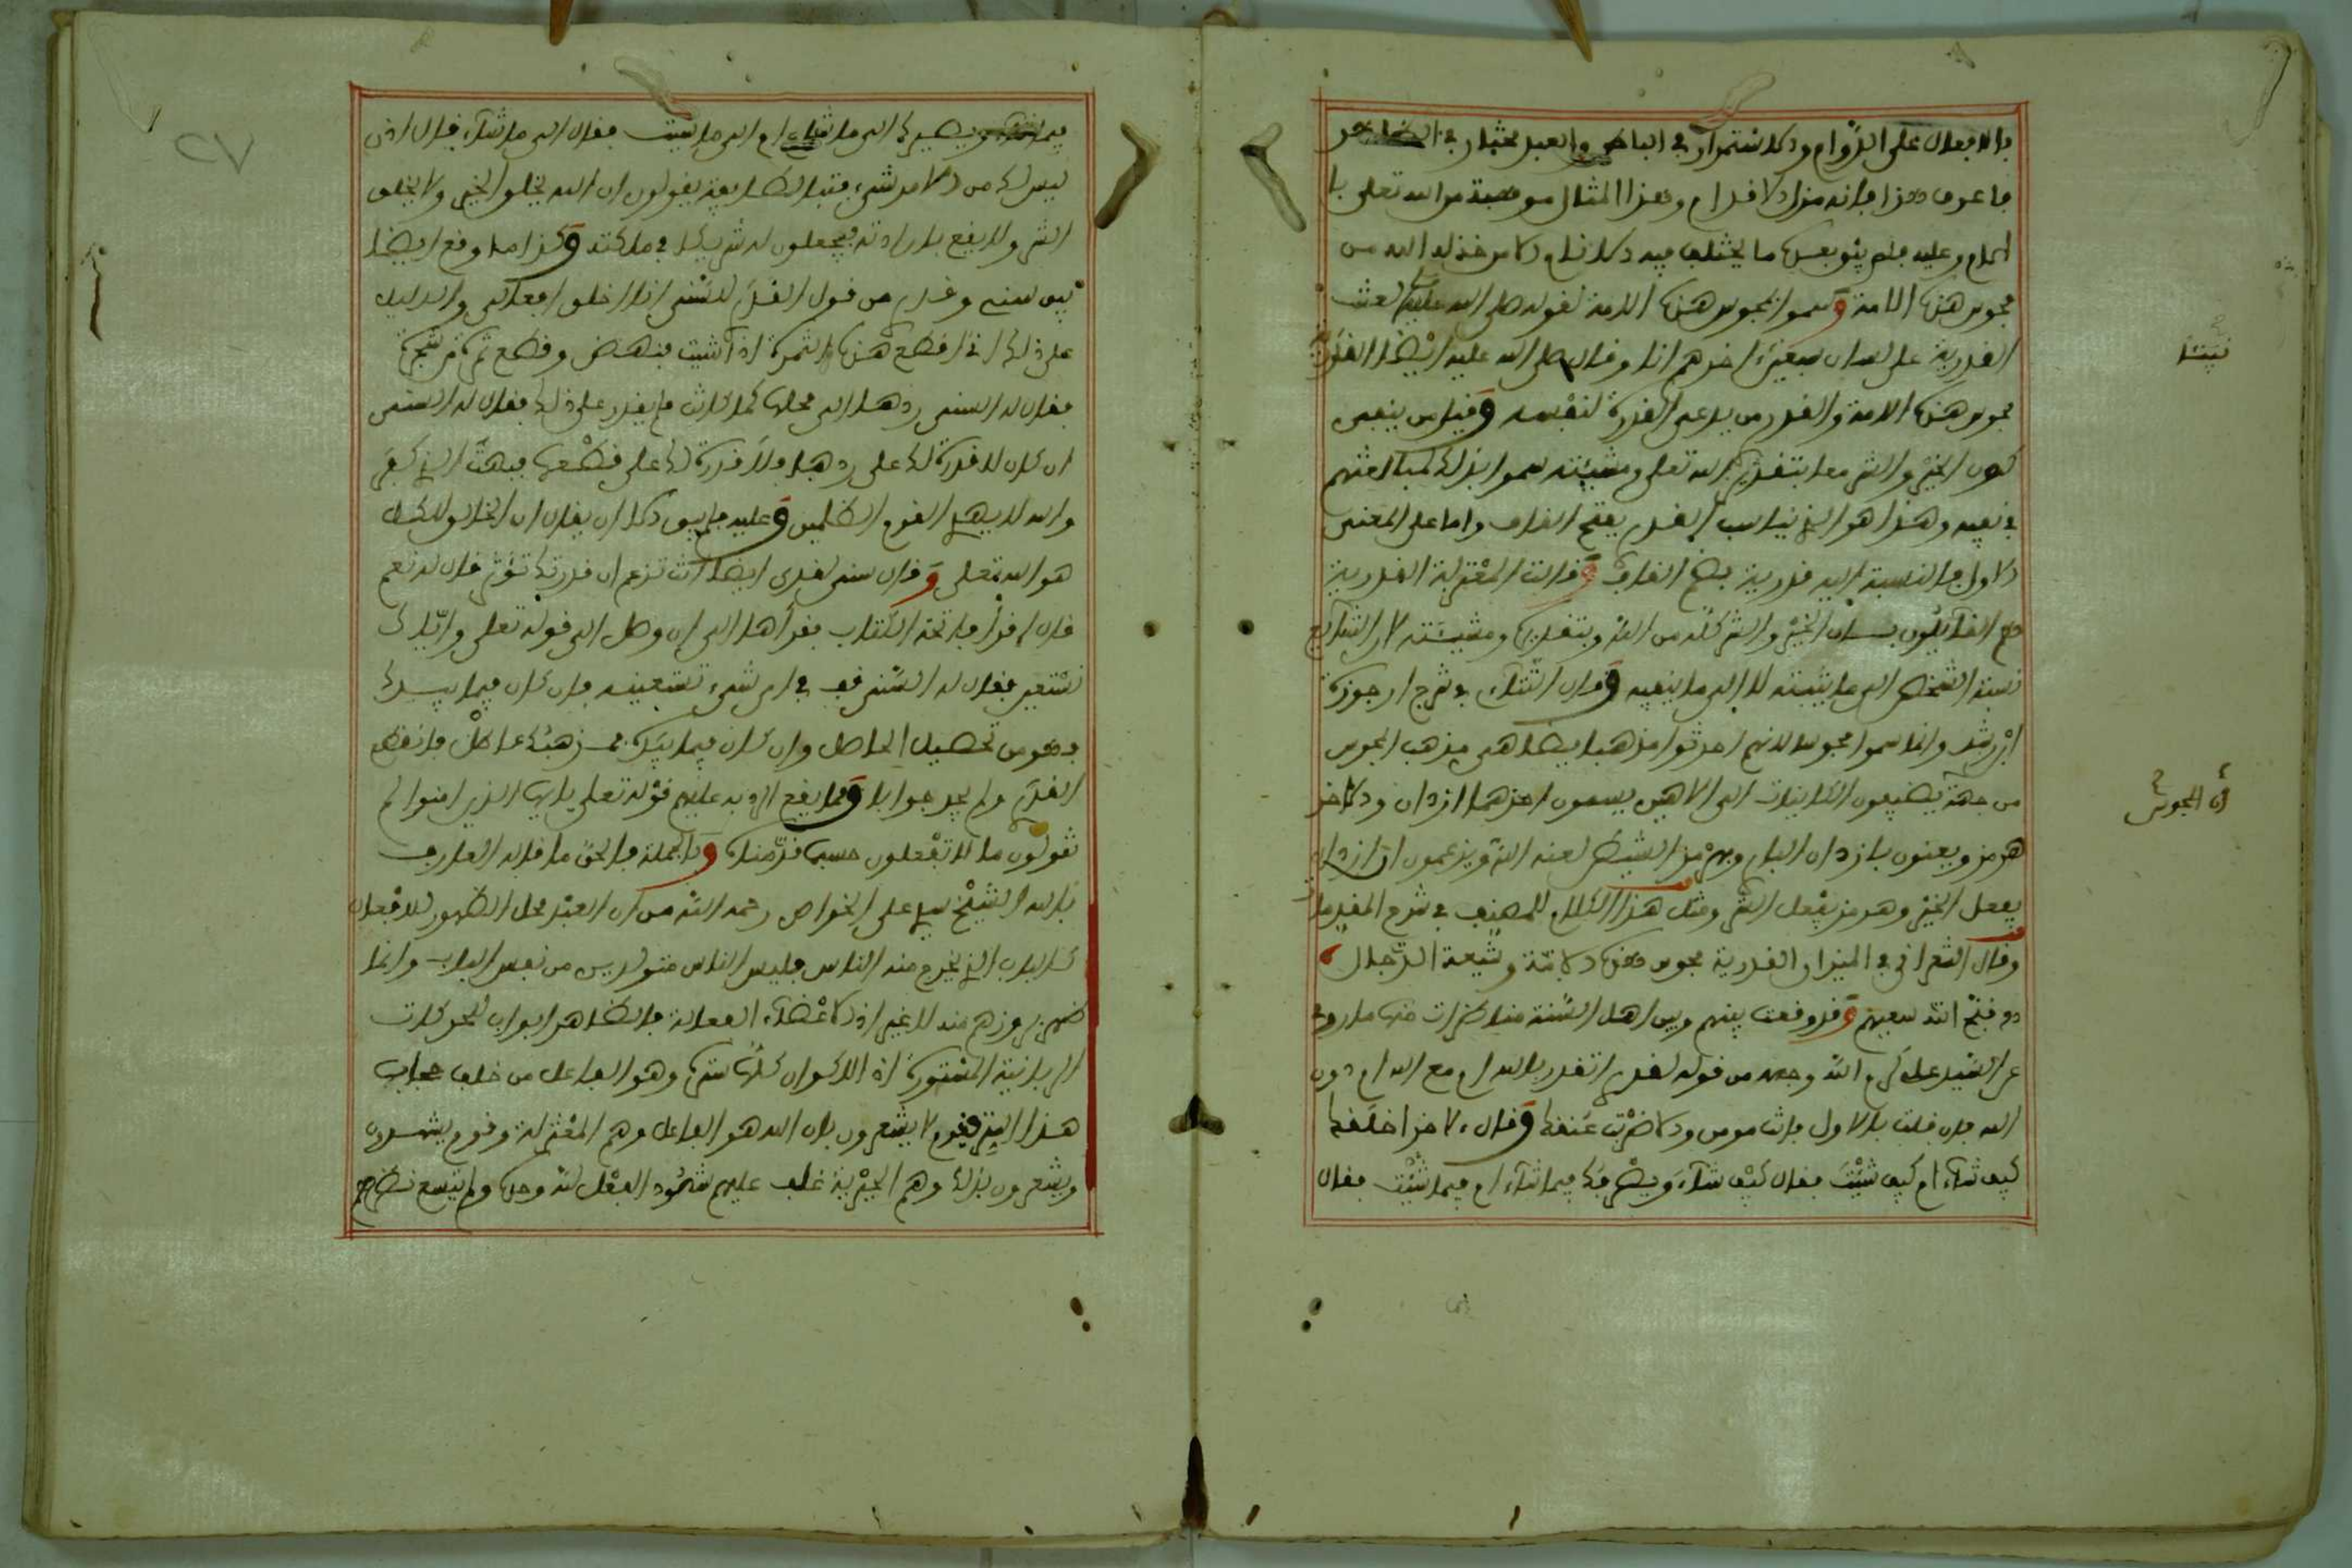 بالافعال على الدوام والاستمرار في الباطن والعبد مختار في الظاهر
فاعرف هذا فإنه مزلة الاقدام وهذا المثال موهبة من الله تعلى
وعليه فلم يثو بعدها ما يختلف فيه الانام الا من خذله الله من
مجوس هذه الامة وسموا مجوس هذه الامة لقوله صلى الله عليه لعنت
القدرية على لسان سبعين نبيا اخرهم انا وقال صلى الله عليه ايضا القدرية
مجوس هذه الامة والقدر من يدعي القدرة لنفسه وقيل من ينفي
كون الخير والشر معا بتقدير الله تعلى ومشيئته سموا بذلك لمبالغتهم
في نفيه وهذا هو الذي يناسب القدر بفتح القاف واما على المعنى
الاول فالنسبة اليه قدرية بضم القاف وقالت المعتزلة القدرية
هم القائلون بان الخير والشر كله من الله وبتقديره ومشيئته لان الشائع
نسبة الشخص الى ما يثبته لا الى ما ينفيه وقال التتاءي في شرح ارجوزة
ابن رشد وانما سموا مجوسا لانهم احدثوا مذهبا يضاهي مذهب المجوس
من جهة يضيفون الكاينات الى الاهين يسمون احدهما ازدان والاخر
هرمز ويعنون بازدان البار وبهرمز الشيطان لعنه الله ويزعمون ان ازدان
يفعل الخير وهرمز يفعل الشر ومثل هذا الكلام للمصنف في شرح المقدمات
وقال الشعراني في الميزان القدرية مجوس هذه الامة وشيعة الدجال
وقبح الله سعيهم وقد وقعت بينهم وبين اهل السنة مناظرات منها ما روي
عن السيد علي كرم الله وجهه من قوله لقدري اتقدر بالله ام مع الله ام دون
الله فان قلت بالاول فانت مومن والا ضربت عنقك وقال لاخر اخلقك
كيف شاء ام كيف شئت فقال كيف شاء ويصرفك فيما شاء ام فيما شئت فقال
أن المجوس
٢٧
فيما شاء ويصيرك الى ما شاء ام الى ما شئت فقال الى ما شاء فقال اذن
ليس لك من الامر شيء فتبا لطايفة يقولون ان الله يخلق الخير ولا يخلق
الشر ولا يقع بارادته فيجعلون له شريكا في ملكته وكذا ما وقع ايضا
بين سني وقدري من قول القدري للسني انا اخلق افعالي والدليل
على ذلك اني اقطع هذه الثمرة اذا شئت فنهض وقطع ثمرة من شجرة
فقال له السني ردها الى محلها كما كانت فلم يقدر على ذلك فقال له السني
ان كان لا قدرة لك على ردها فلا قدرة لك على قطعها فبهت الذي كفر
والله لا يهدي القوم الظلمين وعليه فلم يبق الا ان يقال ان الخالق للكل
هو الله تعلى وقال سني لقدري ايضا انت تزعم ان قدرتك تؤثر قال له نعم
قال اقرأ فاتحة الكتاب فقرأها الى ان وصل الى قوله تعلى واياك
نستعين فقال له السني قف في اي شيء تستعينه فان كان فيما بيدك
فهو من تحصيل الحاصل وان كان فيما بيده فمذهبك باطل فانقطع
القدري ولم يجد جوابا ومما يقع الرد به عليهم قوله تعلى يايها الذين امنوا لم
تقولون ما لا تفعلون حسبما قدمناه وبالجملة فالحق ما قاله العارف
بالله الشيخ سيدي علي الخواص رحمه الله من ان العبد محل الظهور للافعال
كالباب الذي يخرج منه الناس فليس الناس متولدين من نفس الباب وانما
ظهر بروزهم منه لا غير اذ الاعضاء الفعالة في الظاهر ابواب للحركات
الربانية المستورة اذ الاكوان كلها ستر وهو الفاعل من خلف حجاب
هذا الستر فقوم لا يشعرون بان الله هو الفاعل وهم المعتزلة وقوم يشهدون
ويشعرون بذلك وهم الجبرية غلب عليهم شهود الفعل لله وحده ولم يتسع نظرهم